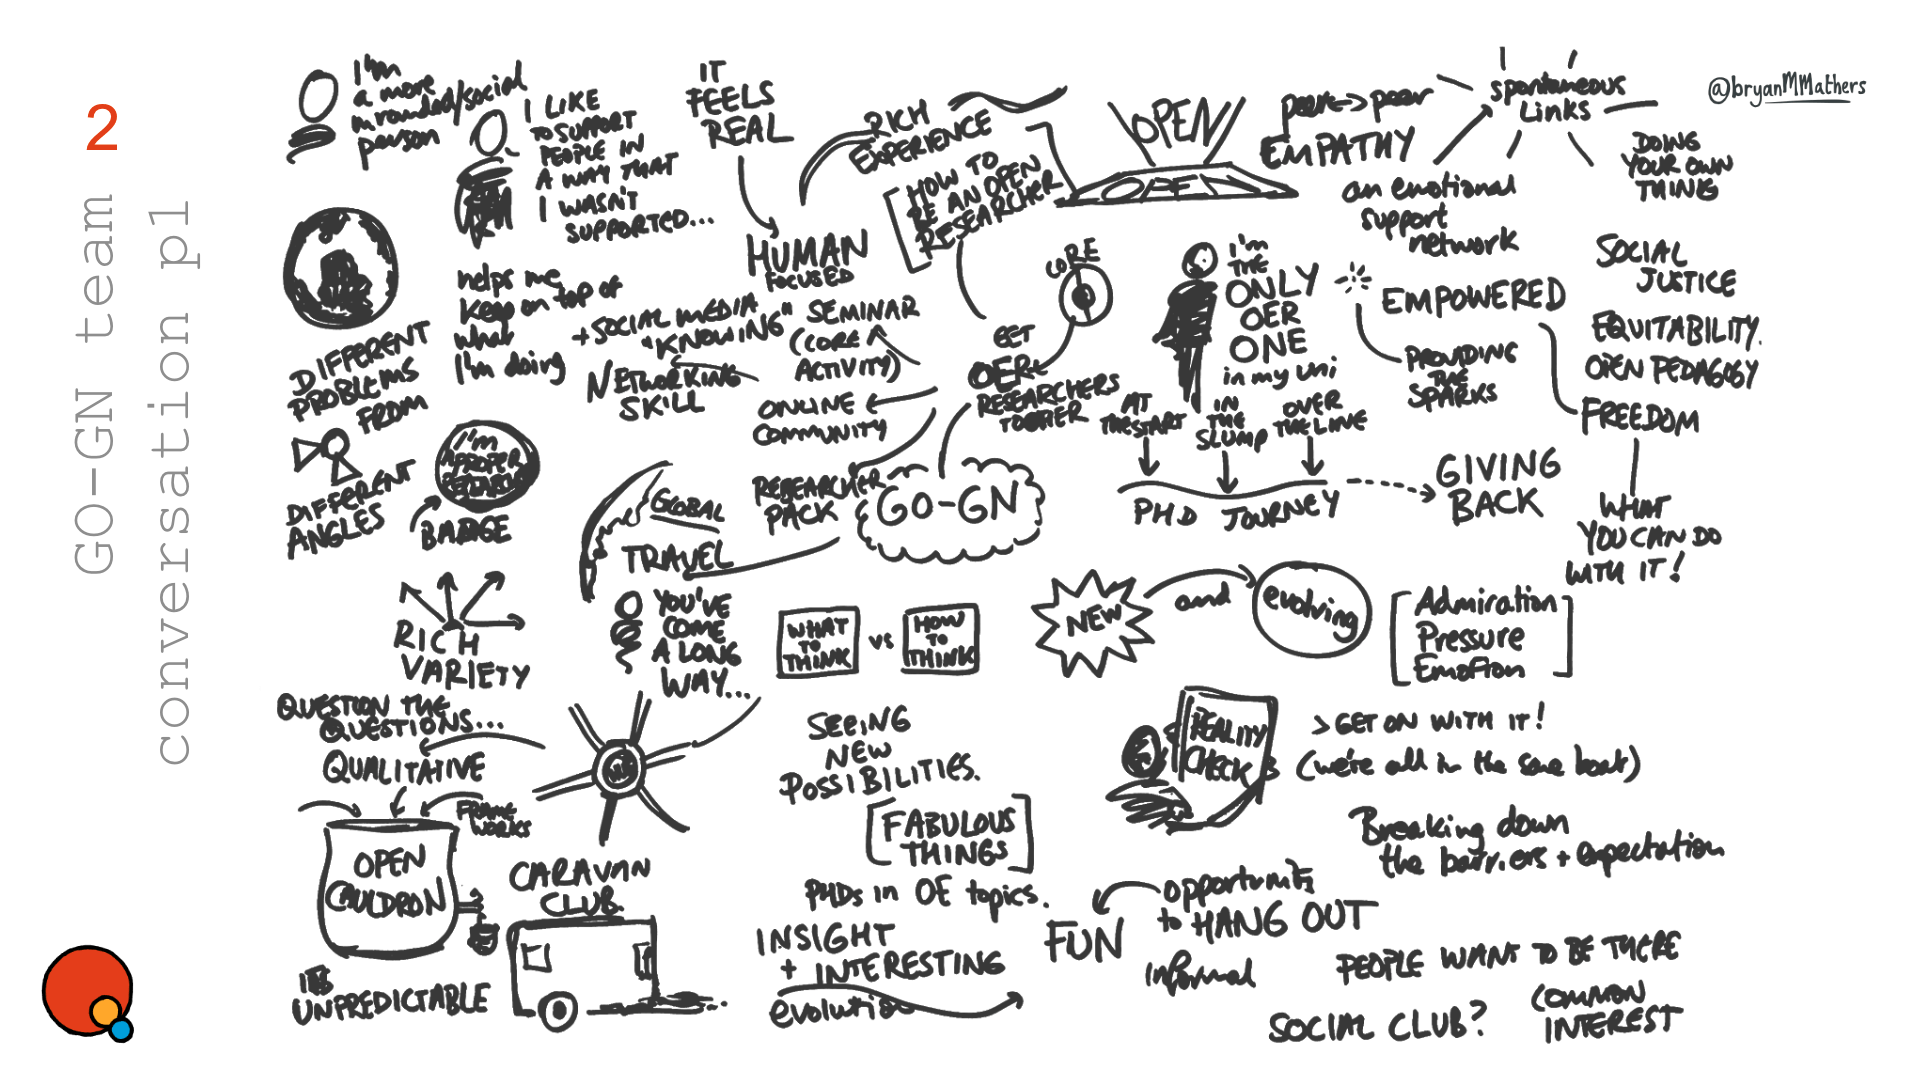 2
GO-GN team
conversation p1
@bryanMMathers
I'm
a more
rounded/social
person
I LIKE
TO SUPPORT
PEOPLE IN
A WAY THAT
I WASN'T
SUPPORTED...
IT
FEELS
REAL
RICH
EXPERIENCE
HOW TO
BE AN OPEN
RESEARCHER
OPEN
OPEN
peer → peer
EMPATHY
an emotional
support
network
spontaneous
LINKS
DOING
YOUR OWN
THING
HUMAN
FOCUSED
helps me
keep on top of
what
I'm doing
+ SOCIAL MEDIA
"KNOWING"
NETWORKING
SKILL
SEMINAR
(CORE
ACTIVITY)
ONLINE
COMMUNITY
RESEARCHER
PACK
CORE
GET
OER
RESEARCHERS
TOGETHER
I'm
THE
ONLY
OER
ONE
in my uni
EMPOWERED
PROVIDING
THE
SPARKS
SOCIAL
JUSTICE
EQUITABILITY.
OPEN PEDAGOGY
FREEDOM
WHAT
YOU CAN DO
WITH IT!
AT
THE START
IN
THE
SLUMP
OVER
THE LINE
PHD JOURNEY
GIVING
BACK
DIFFERENT
PROBLEMS
FROM
DIFFERENT
ANGLES
I'm
A PROPER
BADGE
GO-GN
GLOBAL
TRAVEL
YOU'VE
COME
A LONG
WAY...
RICH
VARIETY
WHAT
TO
THINK
vs
HOW
TO
THINK
NEW
and
evolving
Admiration
Pressure
Emotion
QUESTION THE
QUESTIONS...
QUALITATIVE
FRAME
WORKS
OPEN
CAULDRON
IT'S
UNPREDICTABLE
CARAVAN
CLUB
SEEING
NEW
POSSIBILITIES.
FABULOUS
THINGS
PHDs in OE topics.
INSIGHT
+ INTERESTING
evolution
REALITY
CHECK
> GET ON WITH IT!
(we're all in the same boat)
Breaking down
the barriers + expectation
FUN
opportunity
to HANG OUT
informal
PEOPLE WANT TO BE THERE
SOCIAL CLUB?
COMMON
INTEREST